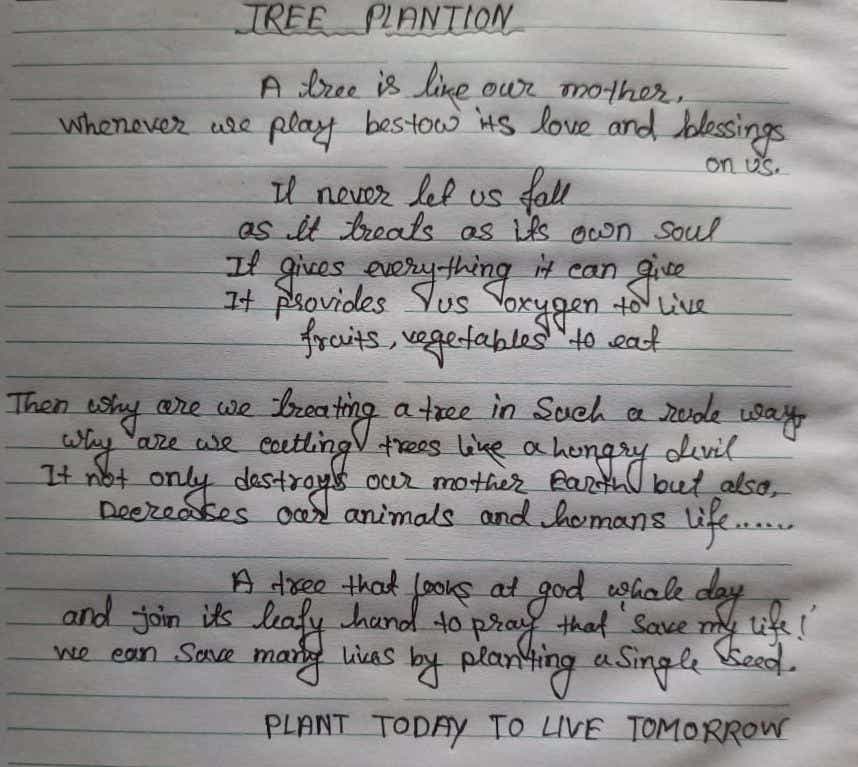 TREE PLANTION
A tree is like our mother,
whenever we play bestow its love and blessings
on us.
It never let us fall
as it treats as its own soul
It gives everything it can give
It provides us oxygen to live
fruits, vegetables to eat
Then why are we treating a tree in such a rude way
why are we cutting trees like a hungry devil
It not only destroys our mother Earth but also,
Decreases our animals and humans life......
A tree that looks at god whole day
and join its leafy hand to pray that 'save my life!'
we can save many lives by planting a single seed.
PLANT TODAY TO LIVE TOMORROW